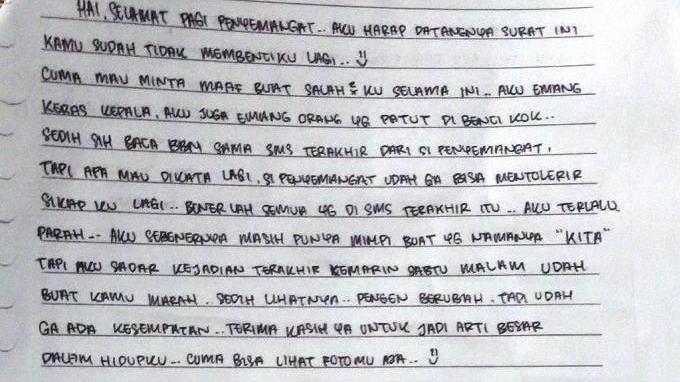 HAI, SELAMAT PAGI PENYEMANGAT.. AKU HARAP DATANGNYA SURAT INI
KAMU SUDAH TIDAK MEMBENCIKU LAGI.. :)
CUMA MAU MINTA MAAF BUAT SALAH² KU SELAMA INI.. AKU EMANG
KERAS KEPALA. AKU JUGA EMANG ORANG YG PATUT DI BENCI KOK..
SEDIH SIH BACA BBM SAMA SMS TERAKHIR DARI SI PENYEMANGAT.
TAPI APA MAU DIKATA LAGI. SI PENYEMANGAT UDAH GA BISA MENTOLERIR
SIKAP KU LAGI.. BENER LAH SEMUA YG DI SMS TERAKHIR ITU .. AKU TERLALU
PARAH.. AKU SEBENERNYA MASIH PUNYA MIMPI BUAT YG NAMANYA "KITA"
TAPI AKU SADAR KEJADIAN TERAKHIR KEMARIN SABTU MALAM UDAH
BUAT KAMU MARAH. SEDIH LIHATNYA.. PENGEN BERUBAH. TAPI UDAH
GA ADA KESEMPATAN.. TERIMA KASIH YA UNTUK JADI ARTI BESAR
DALAM HIDUPKU.. CUMA BISA LIHAT FOTOMU AJA.. :)